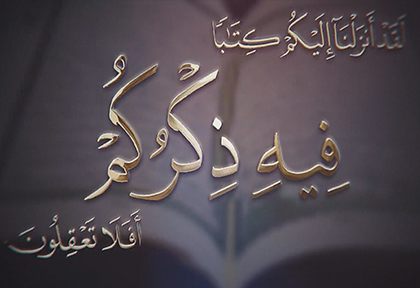 لَقَدْ أَنزَلْنَآ إِلَيْكُمْ كِتَٰبًا
فِيهِ ذِكْرُكُمْ
أَفَلَا تَعْقِلُونَ